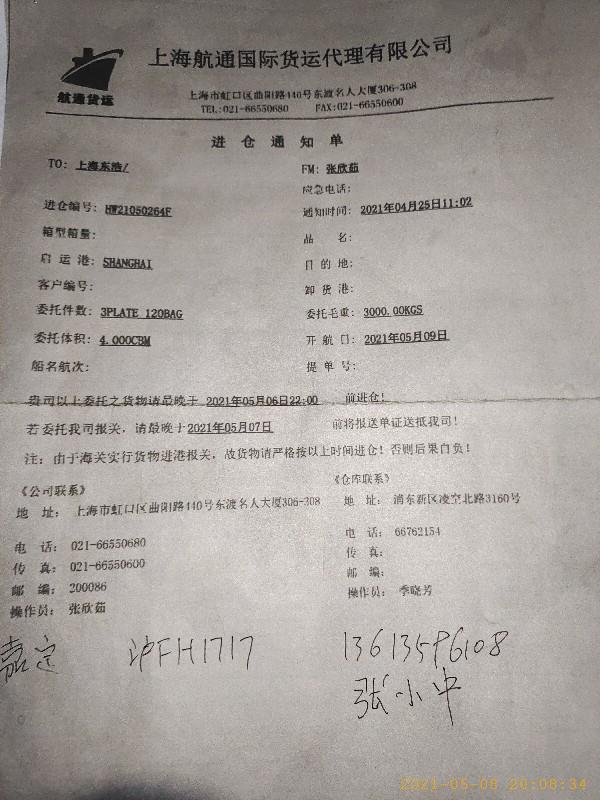 上海航通国际货运代理有限公司
航通货运
上海市虹口区曲阳路440号东渡名人大厦306-308
TEL:021-66550680 FAX:021-66550600
进仓通知单
TO: 上海东浩/ FM: 张欣茹
应急电话:
进仓编号: HW21050264F 通知时间: 2021年04月25日11:02
箱型箱量: 品 名:
启运港: SHANGHAI 目的地:
客户编号: 卸货港:
委托件数: 3PLATE 120BAG 委托毛重: 3000.00KGS
委托体积: 4.000CBM 开航日: 2021年05月09日
船名航次: 提单号:
贵司以上委托之货物请最晚于 2021年05月06日22:00 , 前进仓!
若委托我司报关, 请最晚于2021年05月07日 前将报送单证送抵我司!
注: 由于海关实行货物进港报关, 故货物请严格按以上时间进仓! 否则后果自负!
《公司联系》 《仓库联系》
地 址: 上海市虹口区曲阳路440号东渡名人大厦306-308 地 址: 浦东新区凌空北路3160号
电 话: 021-66550680 电 话: 66762154
传 真: 021-66550600 传 真:
邮 编: 200086 邮 编:
操作员: 张欣茹 操作员: 季晓芳
嘉定 沪FH1717 13613596108
张小中
2021-05-08 20:08:34